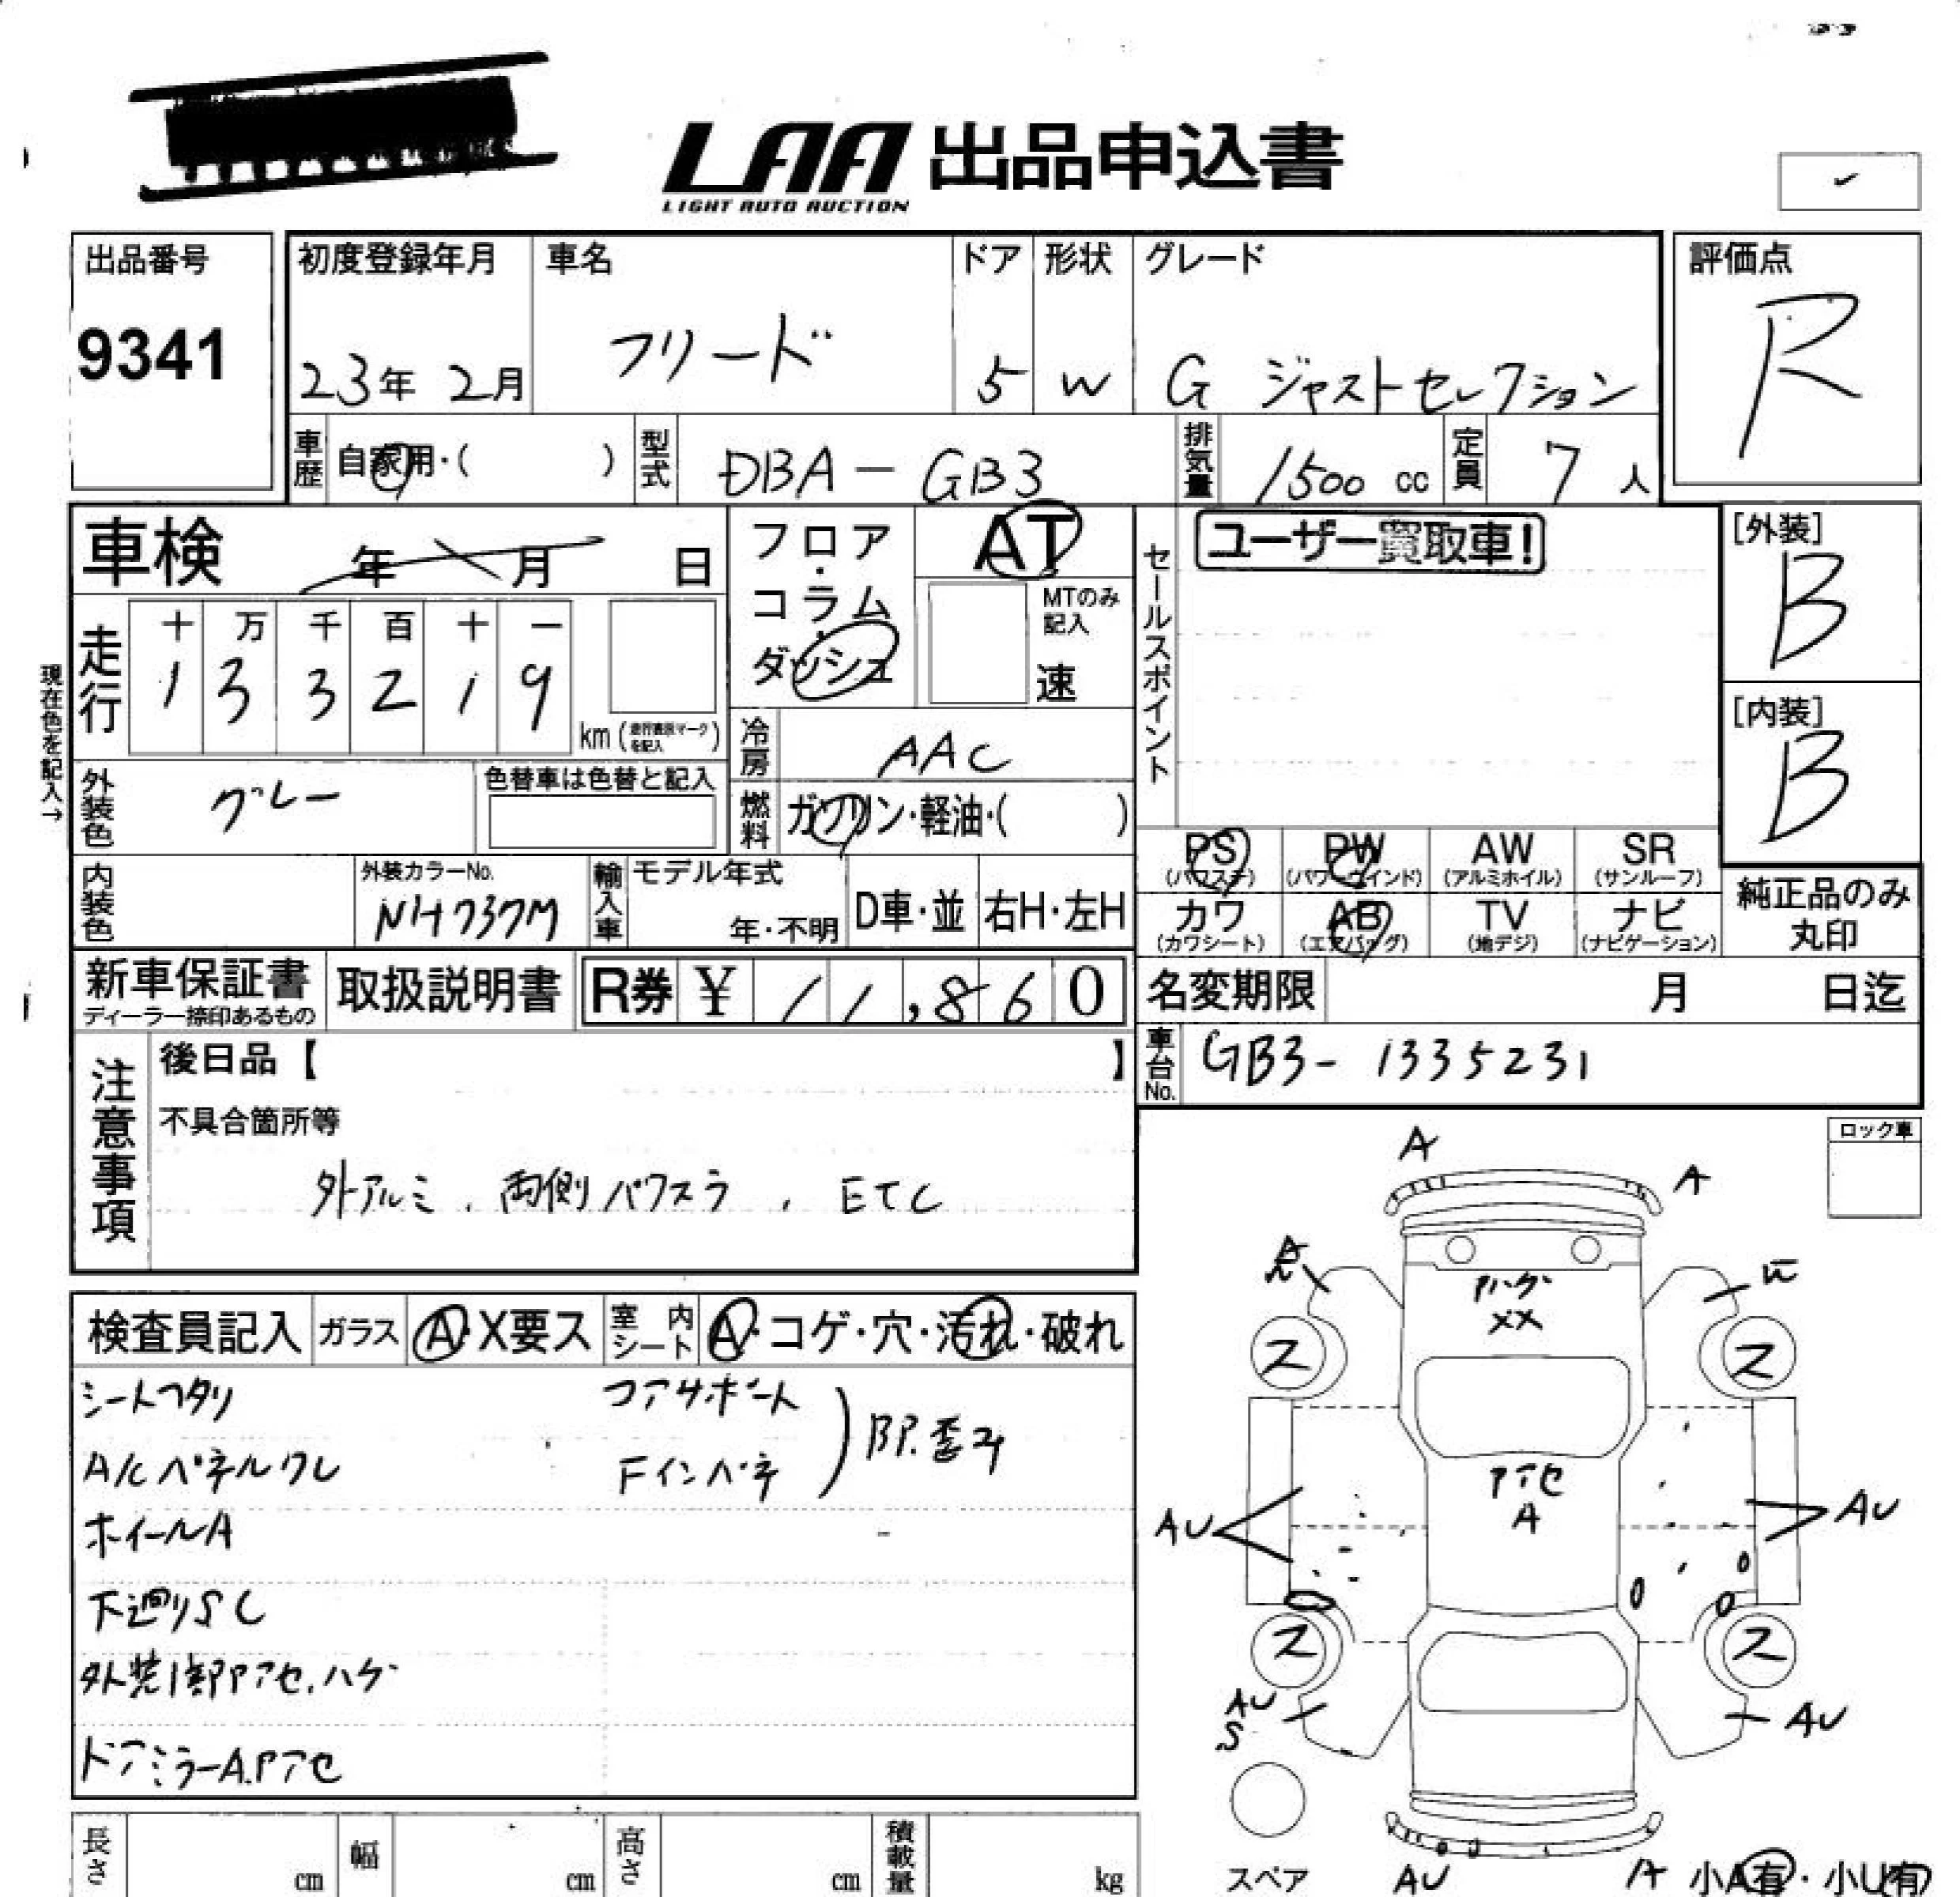 LAA 出品申込書
LIGHT AUTO AUCTION
出品番号
9341
初度登録年月
23年 2月
車名
フリード
ドア
5
形状
W
グレード
G ジャストセレクション
評価点
R
車歴
自家用・( )
型式
DBA-GB3
排気量
1500 cc
定員
7 人
車検
年 月 日
フロア・コラム・ダッシュ
AT
MTのみ記入
速
セールスポイント
ユーザー買取車!
[外装]
B
[内装]
B
現在色を記入→
走行
十 万 千 百 十 一
1 3 3 2 1 9
km(走行距離マークを記入)
冷房
AAC
外装色
グレー
色替車は色替と記入
燃料
ガソリン・軽油・( )
内装色
外装カラーNo.
NH737M
輸入車
モデル年式
年・不明
D車・並
右H・左H
PS (パワステ)
PW (パワーウインド)
AW (アルミホイル)
SR (サンルーフ)
カワ (カワシート)
AB (エアバッグ)
TV (地デジ)
ナビ (ナビゲーション)
純正品のみ丸印
新車保証書
ディーラー捺印あるもの
取扱説明書
R券 ¥ 11,860
名変期限
月 日迄
車台No.
GB3-1335231
注意事項
後日品【 】
不具合箇所等
外アルミ、両側パワスラ、ETC
ロック車
検査員記入
ガラス
A・X要ス
室内シート
A・コゲ・穴・汚れ・破れ
シートヘタリ
コアサポート
A/Cパネルワレ
Fインパネ
BP.歪み
ホイールA
下廻りSC
外装1部Pアセ.ハゲ
ドアミラーA.Pアセ
A
A
A
Pハゲ
XX
ス
ス
Pアセ
A
AU
AU
ス
ス
AU
S
AU
スペア
AU
A
小A有・小U有
長さ
cm
幅
cm
高さ
cm
積載量
kg